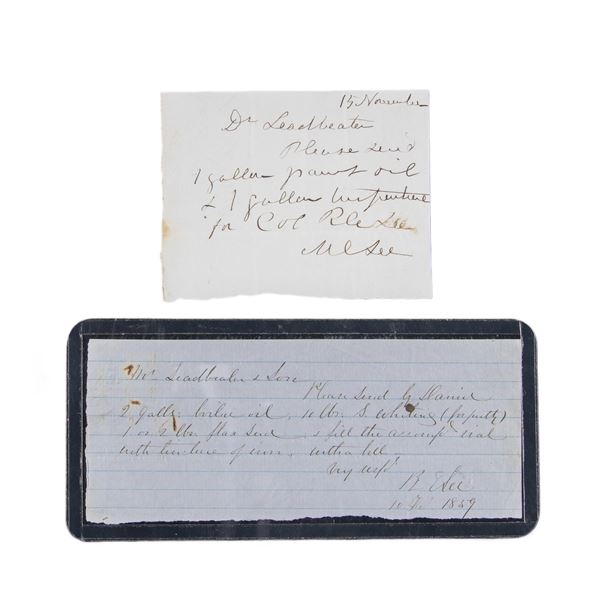 15 November
Dr Leadbeater
Please send
1 gallon paint oil
& 1 gallon turpentine
for Col R E Lee
M C Lee
Mr Leadbeater & Son
Please send by Daniel
2 galls: boiled oil, 10 lbs. S. Whiting (for putty)
1 or 2 lbs. flax seed & fill the accompg vial
with tincture of iron, with a bill
Very respy
R E Lee
10 1859